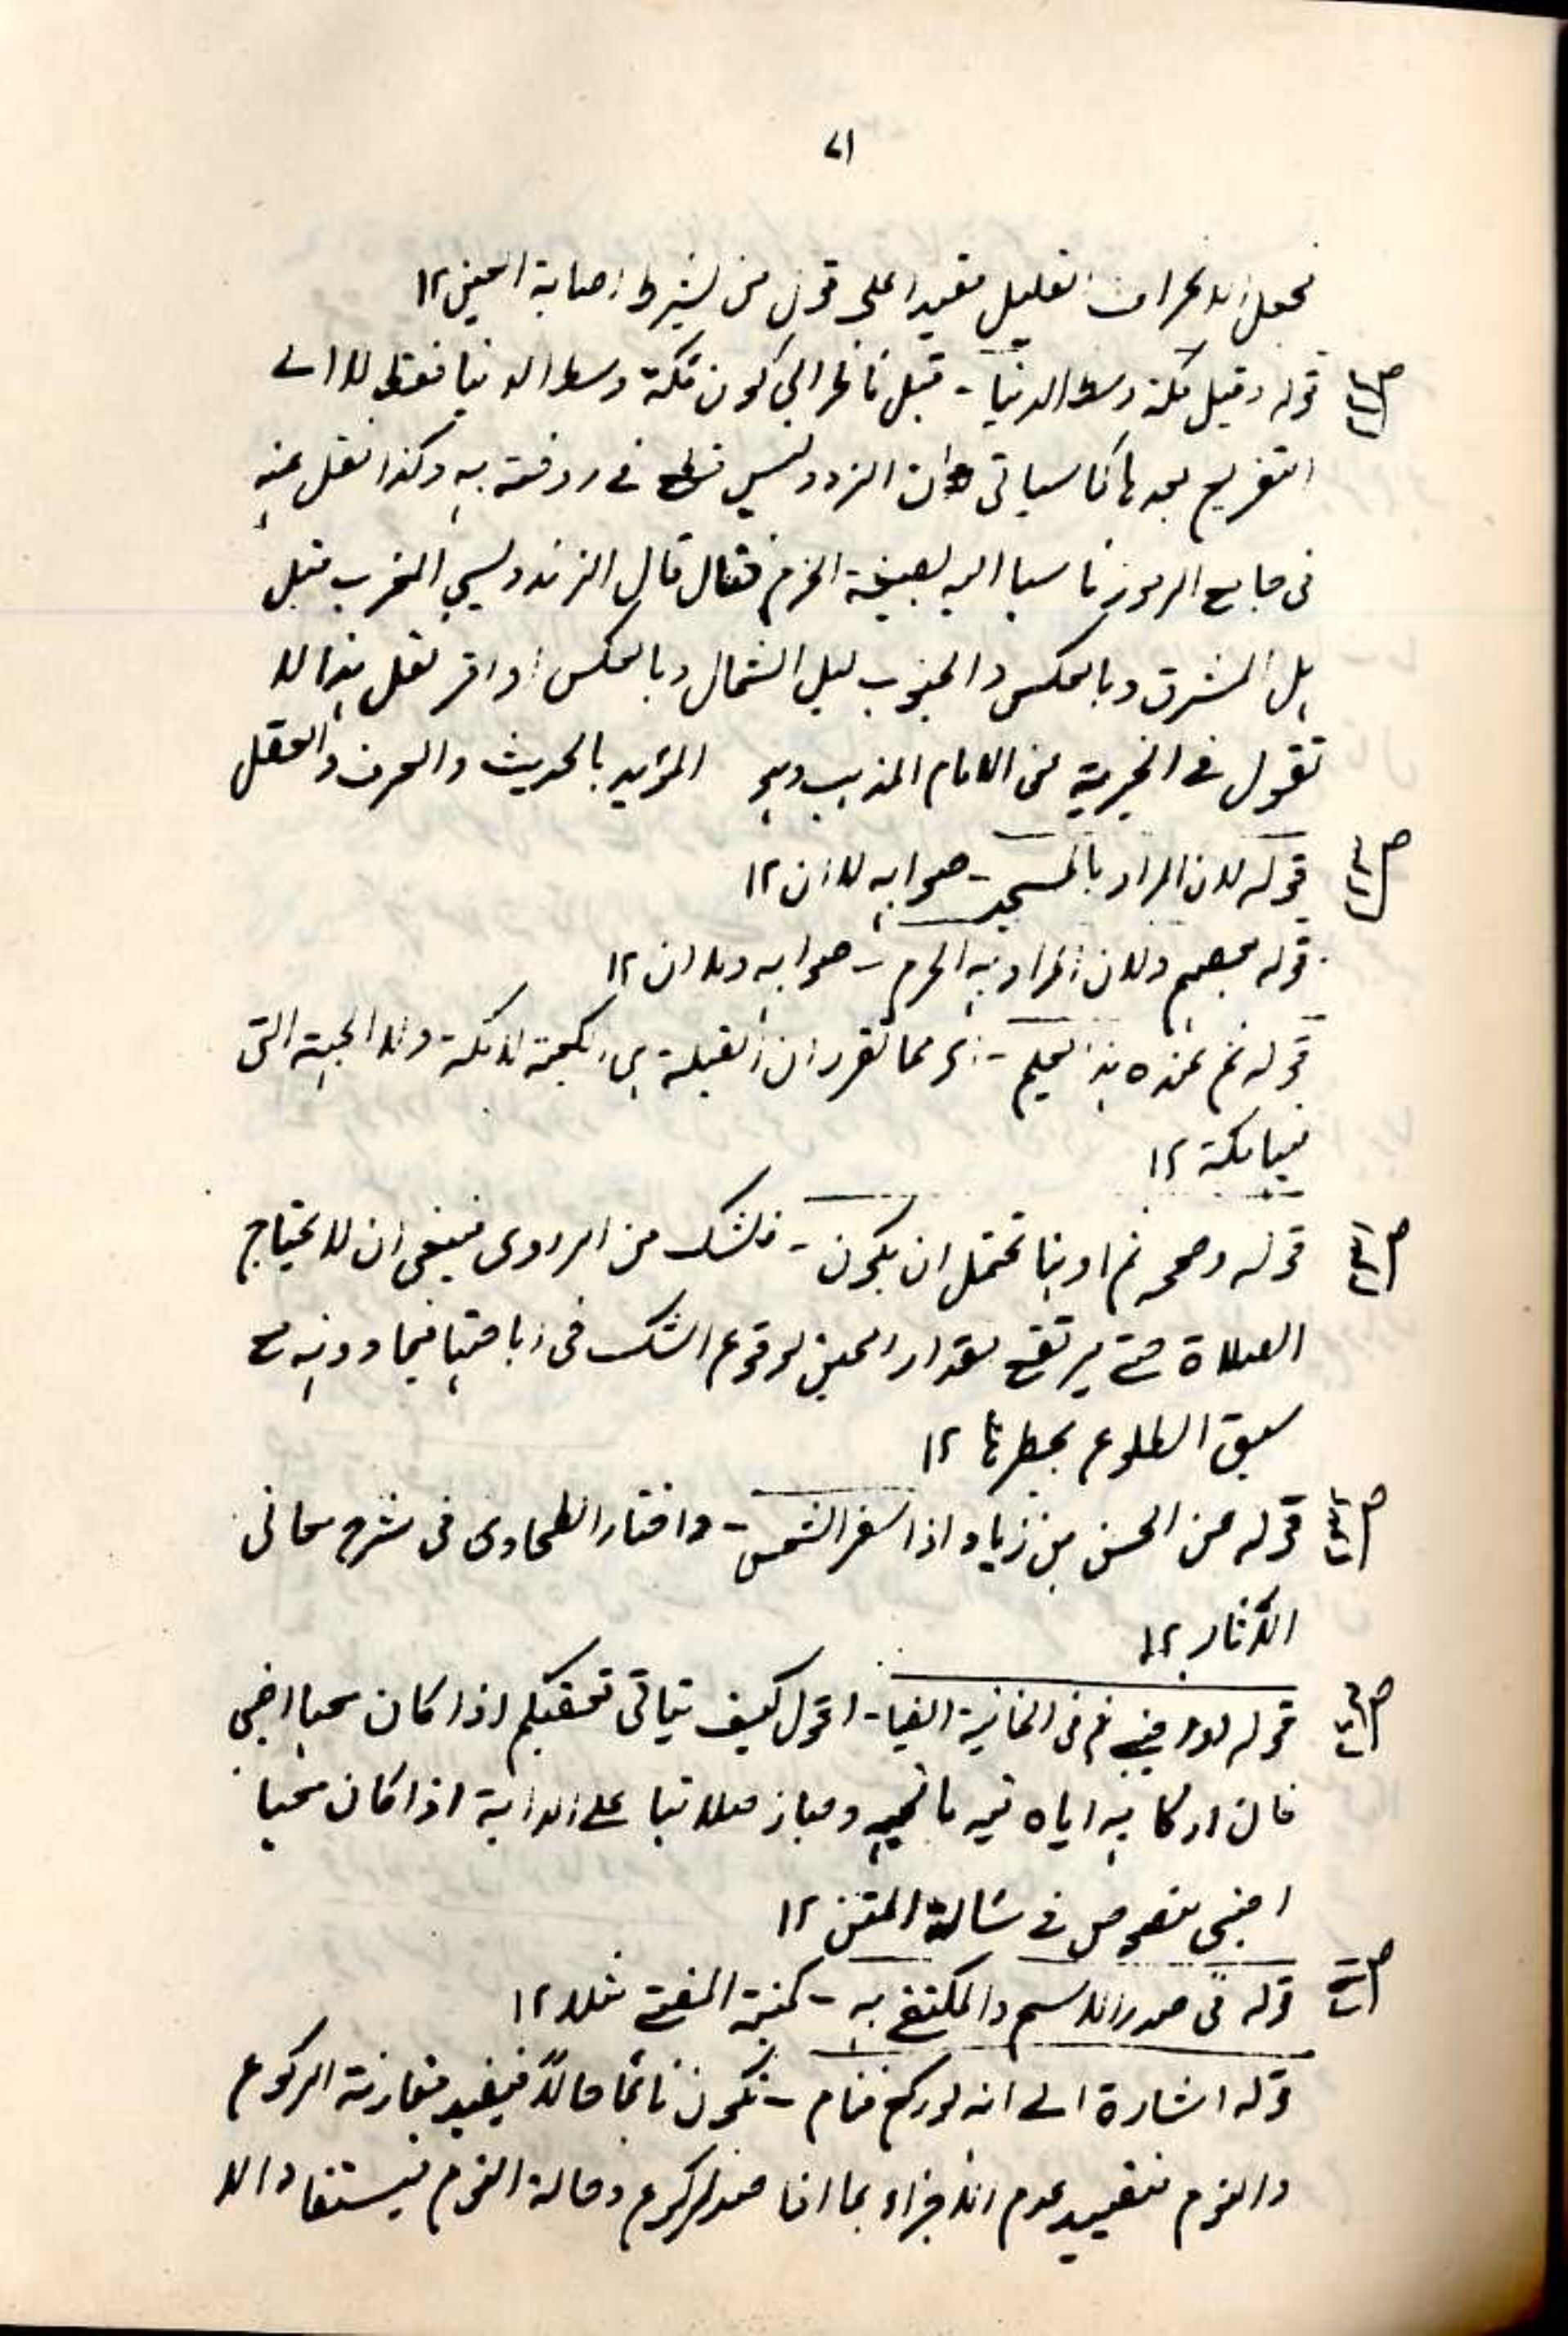 ٧١
نجعل الانحراف القليل مقيدا على قول من يشترط اصابة العين ١٢
قوله وقيل مكة وسط الدنيا - قبل ناظرا الى كون مكة وسط الدنيا فقط لا الى
التفريع بعدها كما سياتى وان الزندوليس فى روضته به وكذا نقل عنه
فى جامع الرموز ناسبا اليه بصيغة الجزم فقال قال الزندويسي المغرب قبلة
لاهل المشرق وبالعكس والجنوب لاهل الشمال وبالعكس اه واقر نقل هذا
نقول فى الخيرية عن الامام المذهب وهو المؤيد بالحديث والعرف والعقل
قوله لان المراد بالمسجد - صوابه لا ان ١٢
قوله بعضهم ولان المراد به الحرم - صوابه ولا ان ١٢
قوله ثم عنده هذا يعلم - اى مما تقرر ان القبلة هى الكعبة لا مكة ولا الجهة التى
فيها مكة ١٢
قوله وصححه ثم او بنا تحتمل ان يكون - فالشك من الراوى فينبغى ان لا يحتاج
الصلاة حتى يرتفع بقدار العين لوقوع الشك فى اباحتها فيما دونه مع
سبق الطلوع بحظرها ١٢
قوله عن الحسن بن زياد اذا اسفر الشمس - واختار الطحاوى فى شرح معانى
الآثار ١٢
قوله ثم فى الخانية ايضا - اقول كيف يتاتى تحقيكم اذا كان معها اجنبي
فان اركابه اياه فيه ما فيه وجاز صلاتها على الدابة اذا كان معها
اجنبى منصوص فى المتن ١٢
قوله فى صدر الاسم والمكتفى به - كنية المفتى مثلا ١٢
قوله اشارة الى انه لو ركع فنام - تكون نائما حالا فيفيد مقارنة الركوع
والنوم فتقييد عدم الاجزاء بما اذا الركوع وحالة النوم فيستفاد الا